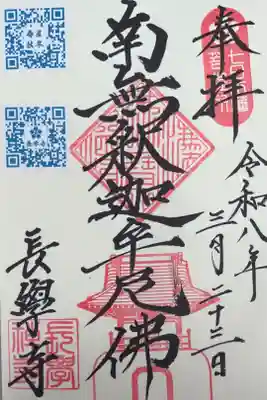 奉拝
令和八年
三月二十三日
南無釈迦牟尼佛
長學寺